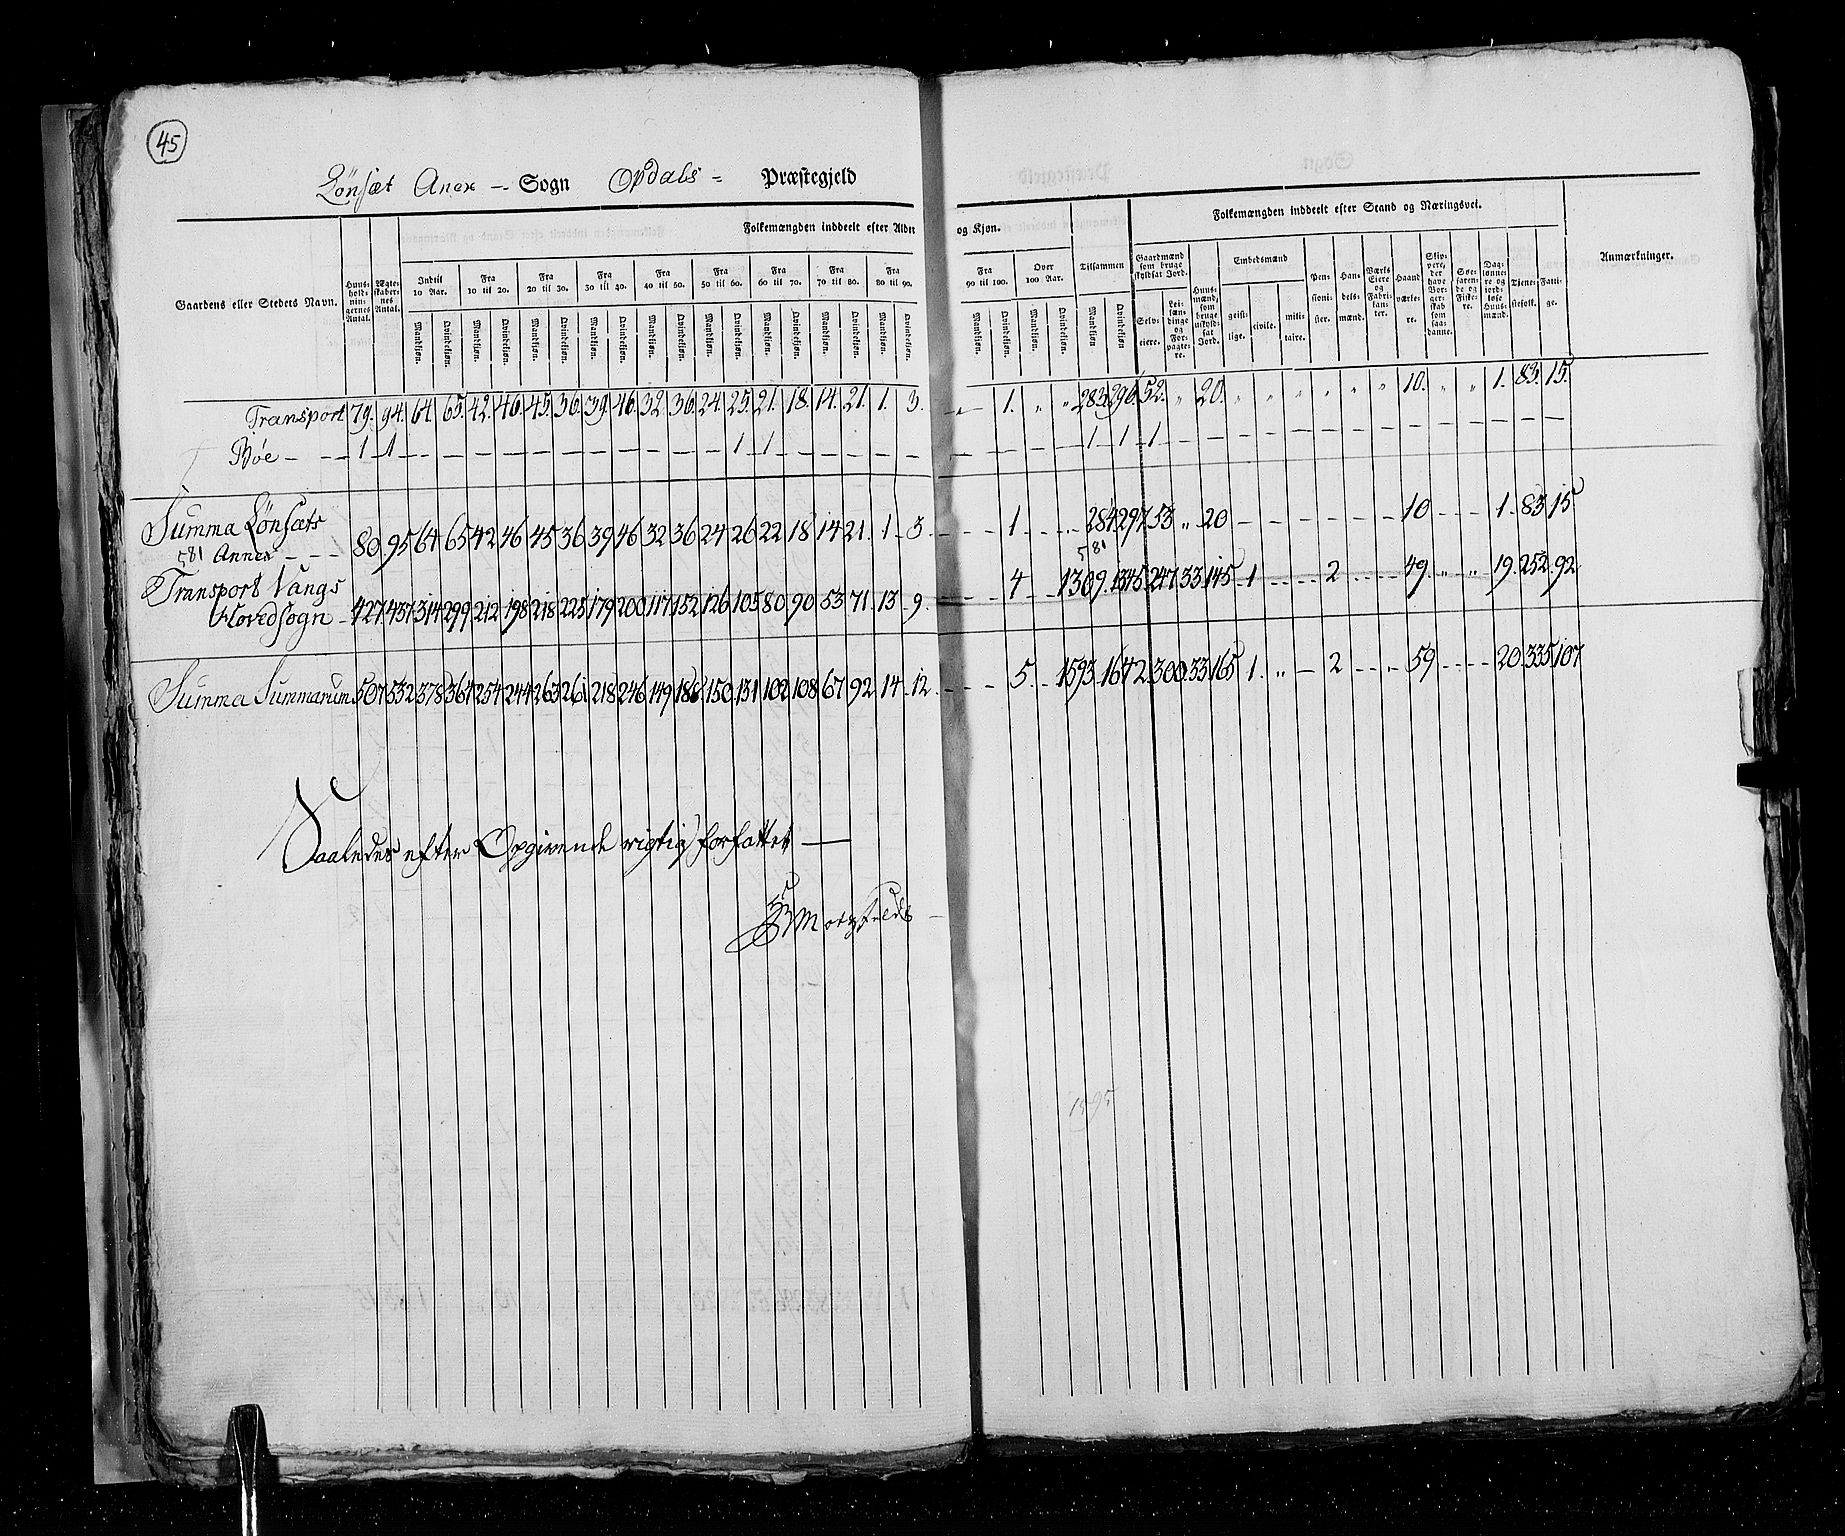 45
Lønsæt Anex - Sogn Opdals - Præstegjeld
Folkemængden inddeelt efter Alder og Kjøn. Folkemængden inddeelt efter Stand og Næringsvei.
Gaardens eller Stedets Navn. Huus-holdningernes Antal. Ægteskabernes Antal. Indtil 10 Aar. Fra 10 til 20. Fra 20 til 30. Fra 30 til 40. Fra 40 til 50. Fra 50 til 60. Fra 60 til 70. Fra 70 til 80. Fra 80 til 90. Fra 90 til 100. Over 100 Aar. Tilsammen Gaardmænd som bruge skyldsat Jord. Huusmænd, som bruge uskyldsat Jord. Embedsmænd Pensionister. Handelsmænd. Værks Eiere og Fabrikanter. Haandværkere. Skippere, der have Borgerskab som saadanne. Søefarende og Fiskere. Daglønnere og jordløse Huusmænd. Tjenestefolk. Fattige. Anmærkninger.
Mandkjøn. Qvindekjøn. Mandkjøn. Qvindekjøn. Mandkjøn. Qvindekjøn. Mandkjøn. Qvindekjøn. Mandkjøn. Qvindekjøn. Mandkjøn. Qvindekjøn. Mandkjøn. Qvindekjøn. Mandkjøn. Qvindekjøn. Mandkjøn. Qvindekjøn. Mandkjøn. Qvindekjøn. Mandkjøn. Qvindekjøn. Mandkjøn Qvindekjøn Selveiere. Leilændinge og Forpagtere. geistlige. civile. militaire.
Transport 79. 94. 64. 65. 42. 46. 45. 36. 39. 46. 32. 36. 24. 25. 21. 18. 14. 21. 1. 3. „ 1. „ „ 283. 296. 52. „ 20. „ „ „ „ „ „ 10. „ „ 1. 83. 15.
Bøe - - 1 1 - - - - - - - - - - - 1 1 - - - - - - - - - 1 1 1 - - - - - - - - - - - - - -
Summa Lønsæts
581 Annex - - - 80. 95 64 65 42 46 45 36 39 46 32 36 24 26 22 18 14 21. 1 3. - - 1 - - 284 297 53 „ 20 - - - - - - 10 - - 1. 83 15
581
Transport Vangs
Hovedsogn - 427. 437 314 299 212 198 218 225 179 200 117 152 126 105 80 90 53 71 13 9. - - 4 - 1309. 1345. 247. 33. 145 1 - - 2 - - 49. „ „ 19. 252. 92
Summa Summarum 507 532 378 364 254 244 263 261 218 246 149 188 150. 131 102 108 67 92 14 12. - - 5. - 1593. 1642. 300. 33. 165 1. „ - 2 - - 59 - - 20. 335 107
Saaledes efter Opgivende rigtig forfattet —
1595